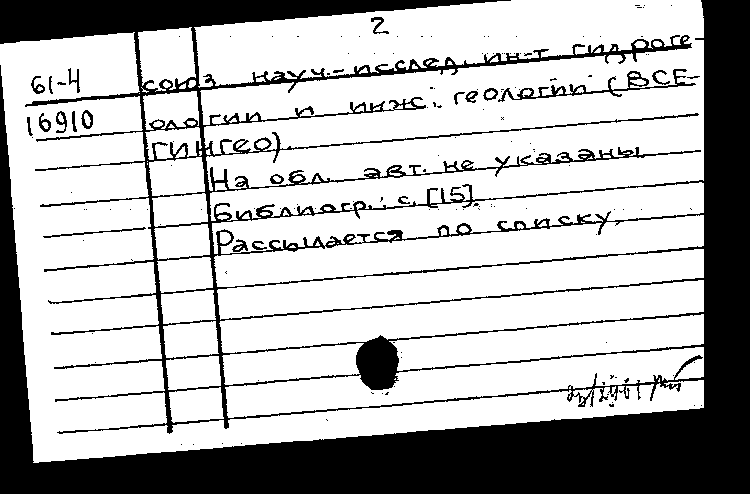 2
61-4 союз. науч.-исслед. ин-т гидроге-
16910 ологии и инж. геологии (ВСЕ-
ГИНГЕО).
На обл. авт. не указаны.
Библиогр.: с. [15].
Рассылается по списку.